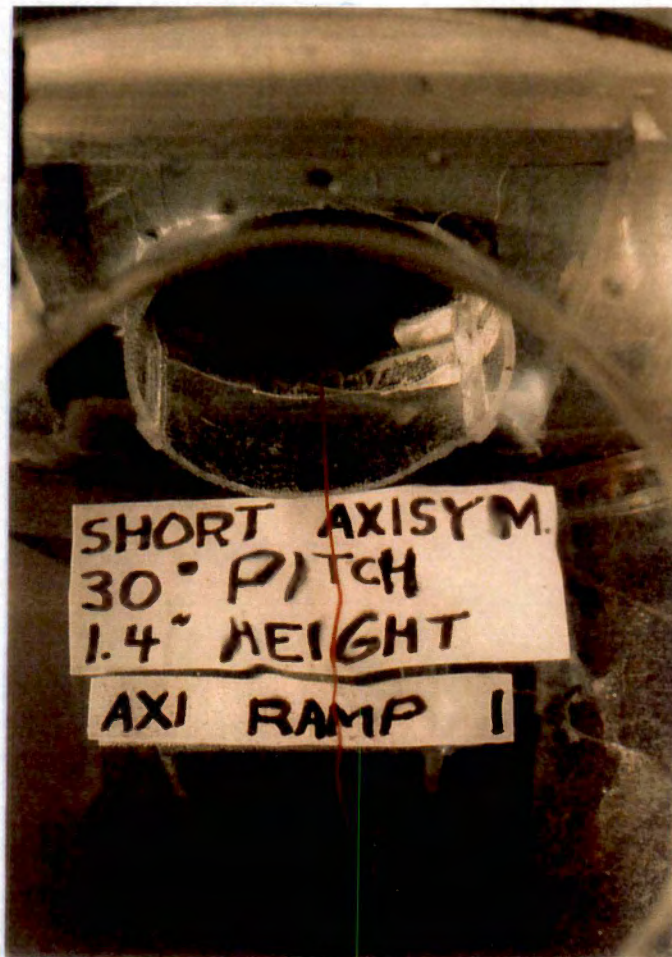 SHORT AXISYM.
30° PITCH
1.4" HEIGHT
AXI RAMP 1